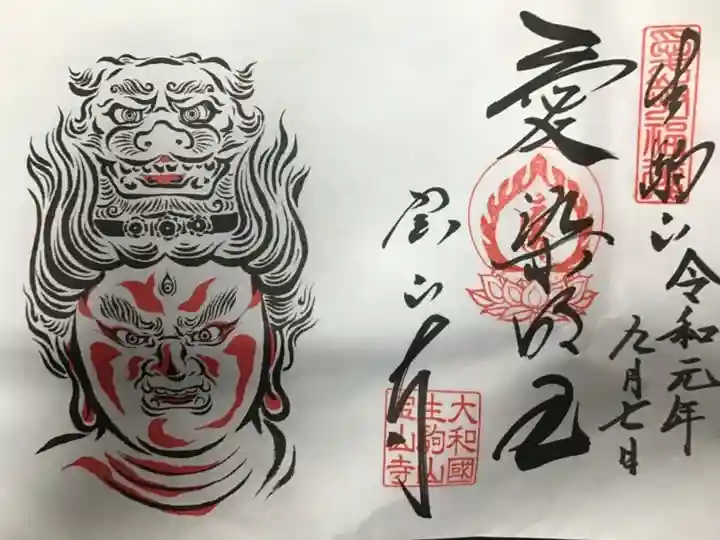 生駒山
令和元年
九月七日
愛染明王
宝山寺
大和國
生駒山
寶山寺